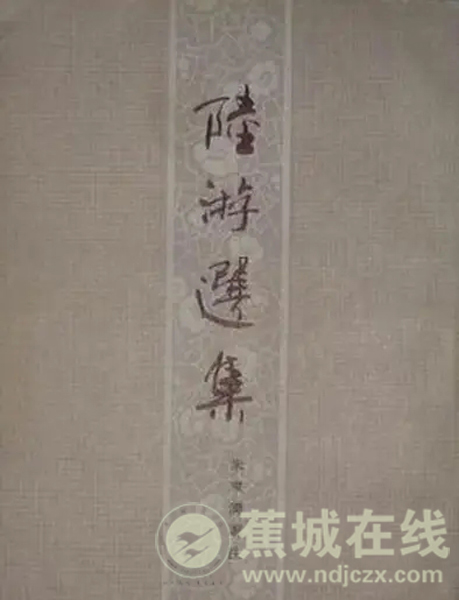 陸游選集
蕉城在线
www.ndjczx.com